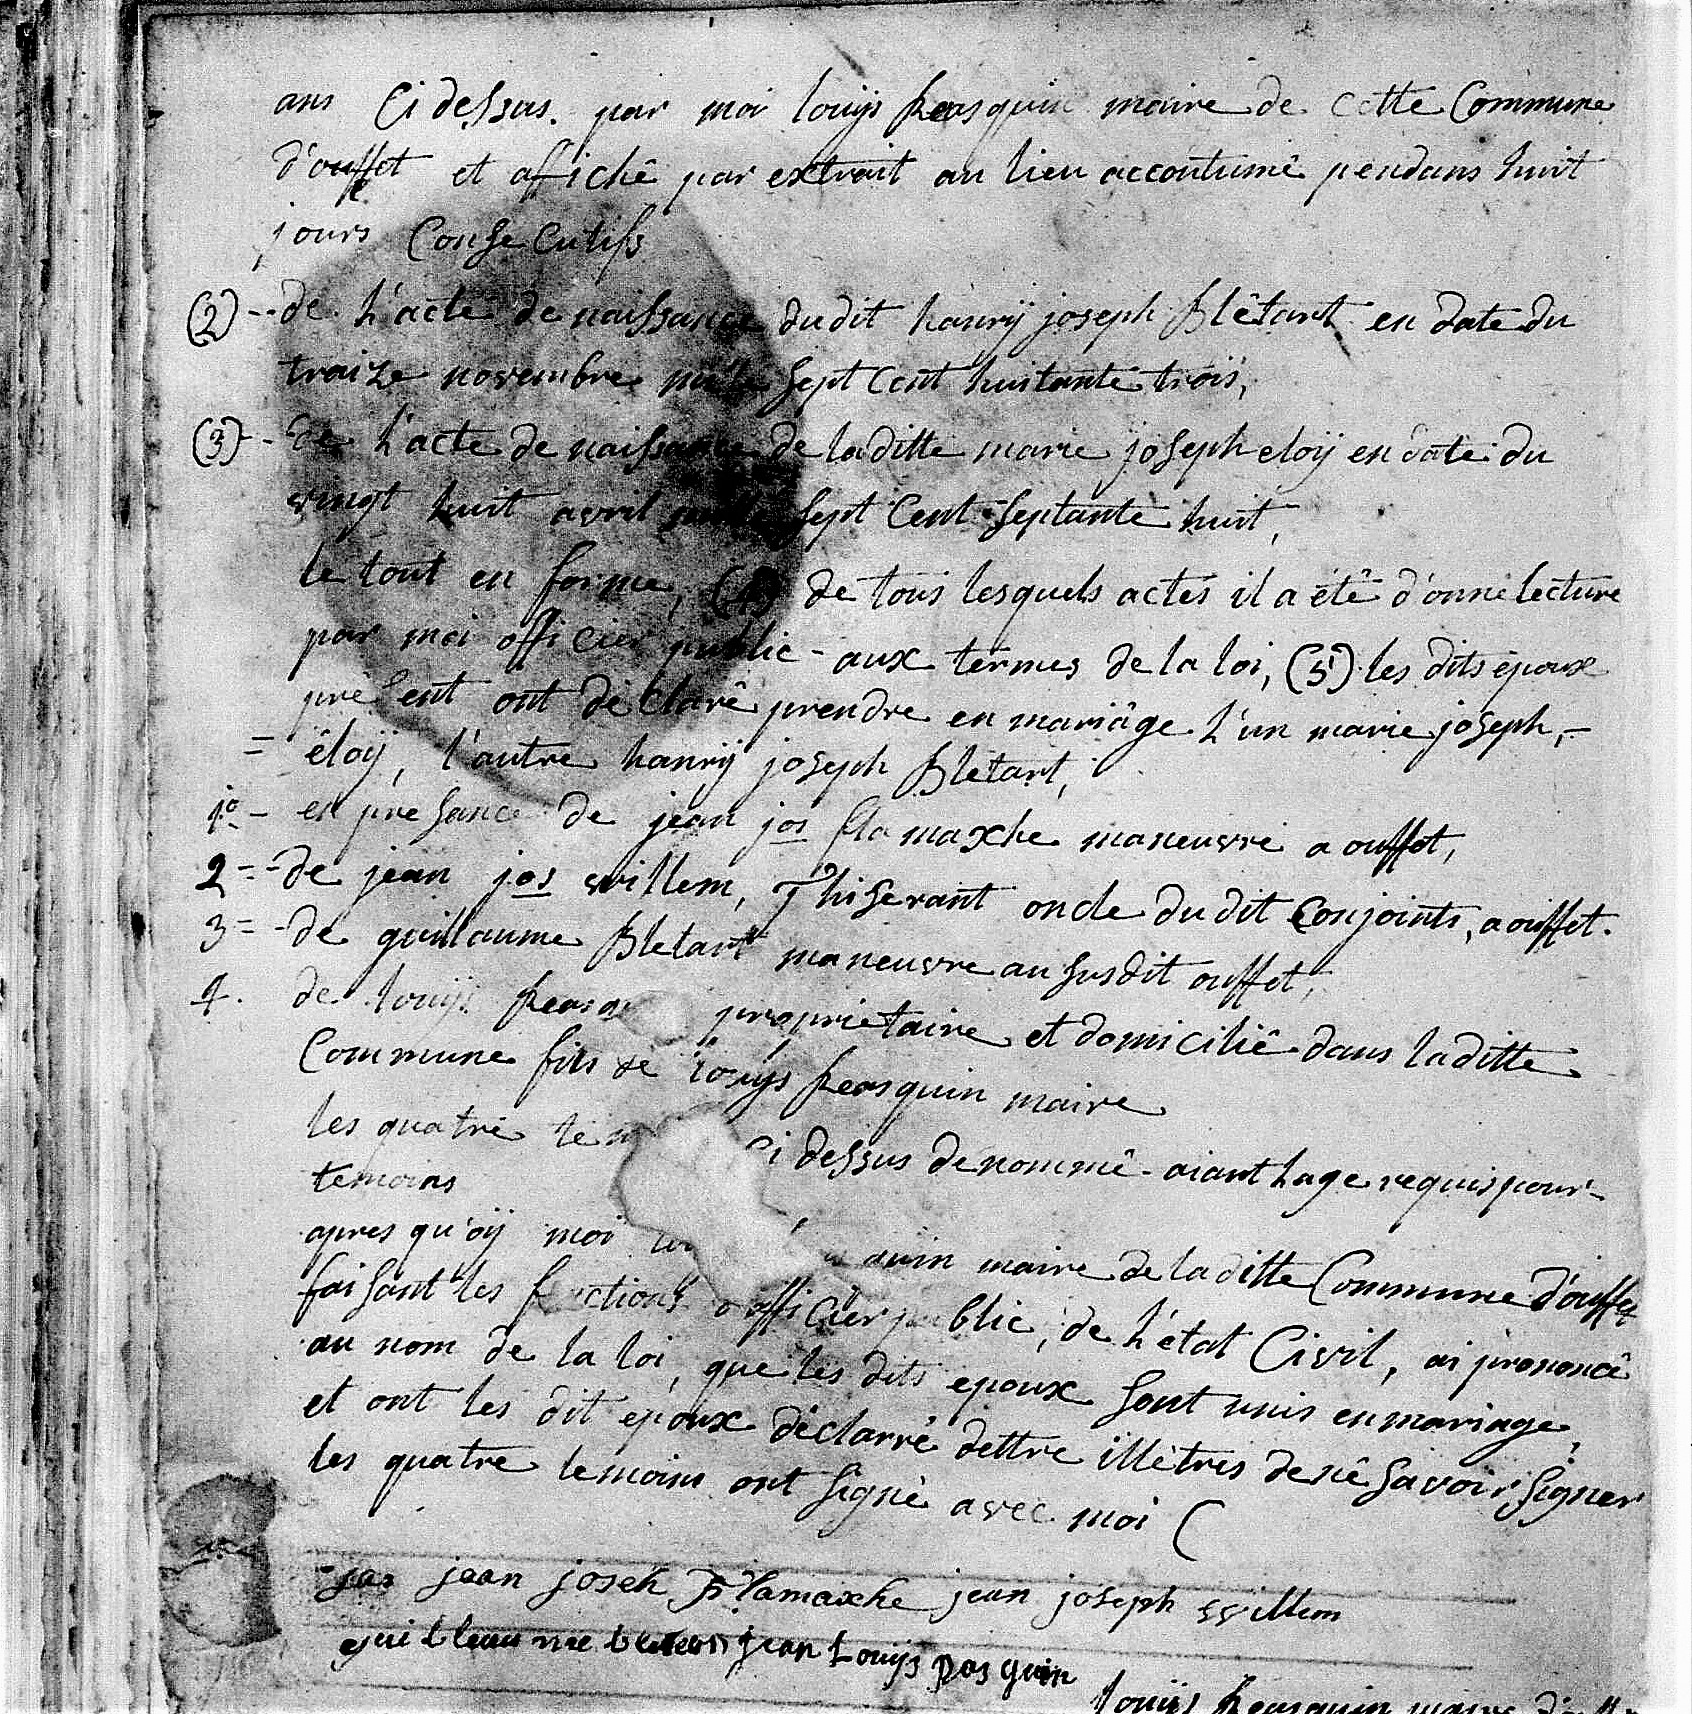 ans Ci dessus. par moi louÿs pasquin maire de cette Commune
d'ouffet et afichê par extrait au lieu accoutumê pendans huit
jours Consecutifs
(2) -- de l'acte de naissance dudit hanrÿ joseph Blêtart en date du
traize novembre mille sept cent huitante troiÿ,
(3) -- de l'acte de naissance de laditte marie joseph eloÿ en date du
vingt huit avril mille sept Cent septante huit,
le tout en forme, (4) de tous lesquels actes il a étê d'onné lecture
par moi officier public - aux termes de la loi, (5) les dits époux
present ont déclarê prendre en mariâge l'un marie joseph, -
= éloÿ, l'autre hanrÿ joseph Blétart,
1º - en presance de jean jos flamaxhe maneuvre a ouffet,
2 = - de jean jos willem, Thiserant oncle du dit Conjoints, a ouffet.
3 = - de guillaume Bletart maneuvre au susdit ouffet,
4. de louÿs proprietaire et domiciliê dans laditte
Commune fils de louÿs pasquin maire
les quatre Ci dessus denommê - aiant hage requis pour -
temoins
apres qu'oÿ moi quin maire de laditte Commune d'ouffet
faisant les fonctions d'officier public, de l'état Civil, ai prononcê
au nom de la loi, que les dits epoux sont unis en mariage,
et ont les dit époux déclarré dettre illêtrés de nê savoir signer
les quatre temoins ont signé avec moi (
jean joseh flamaxhe jean joseph willem
guilleaume jean Louÿs pasquin
louÿs pasquin maire